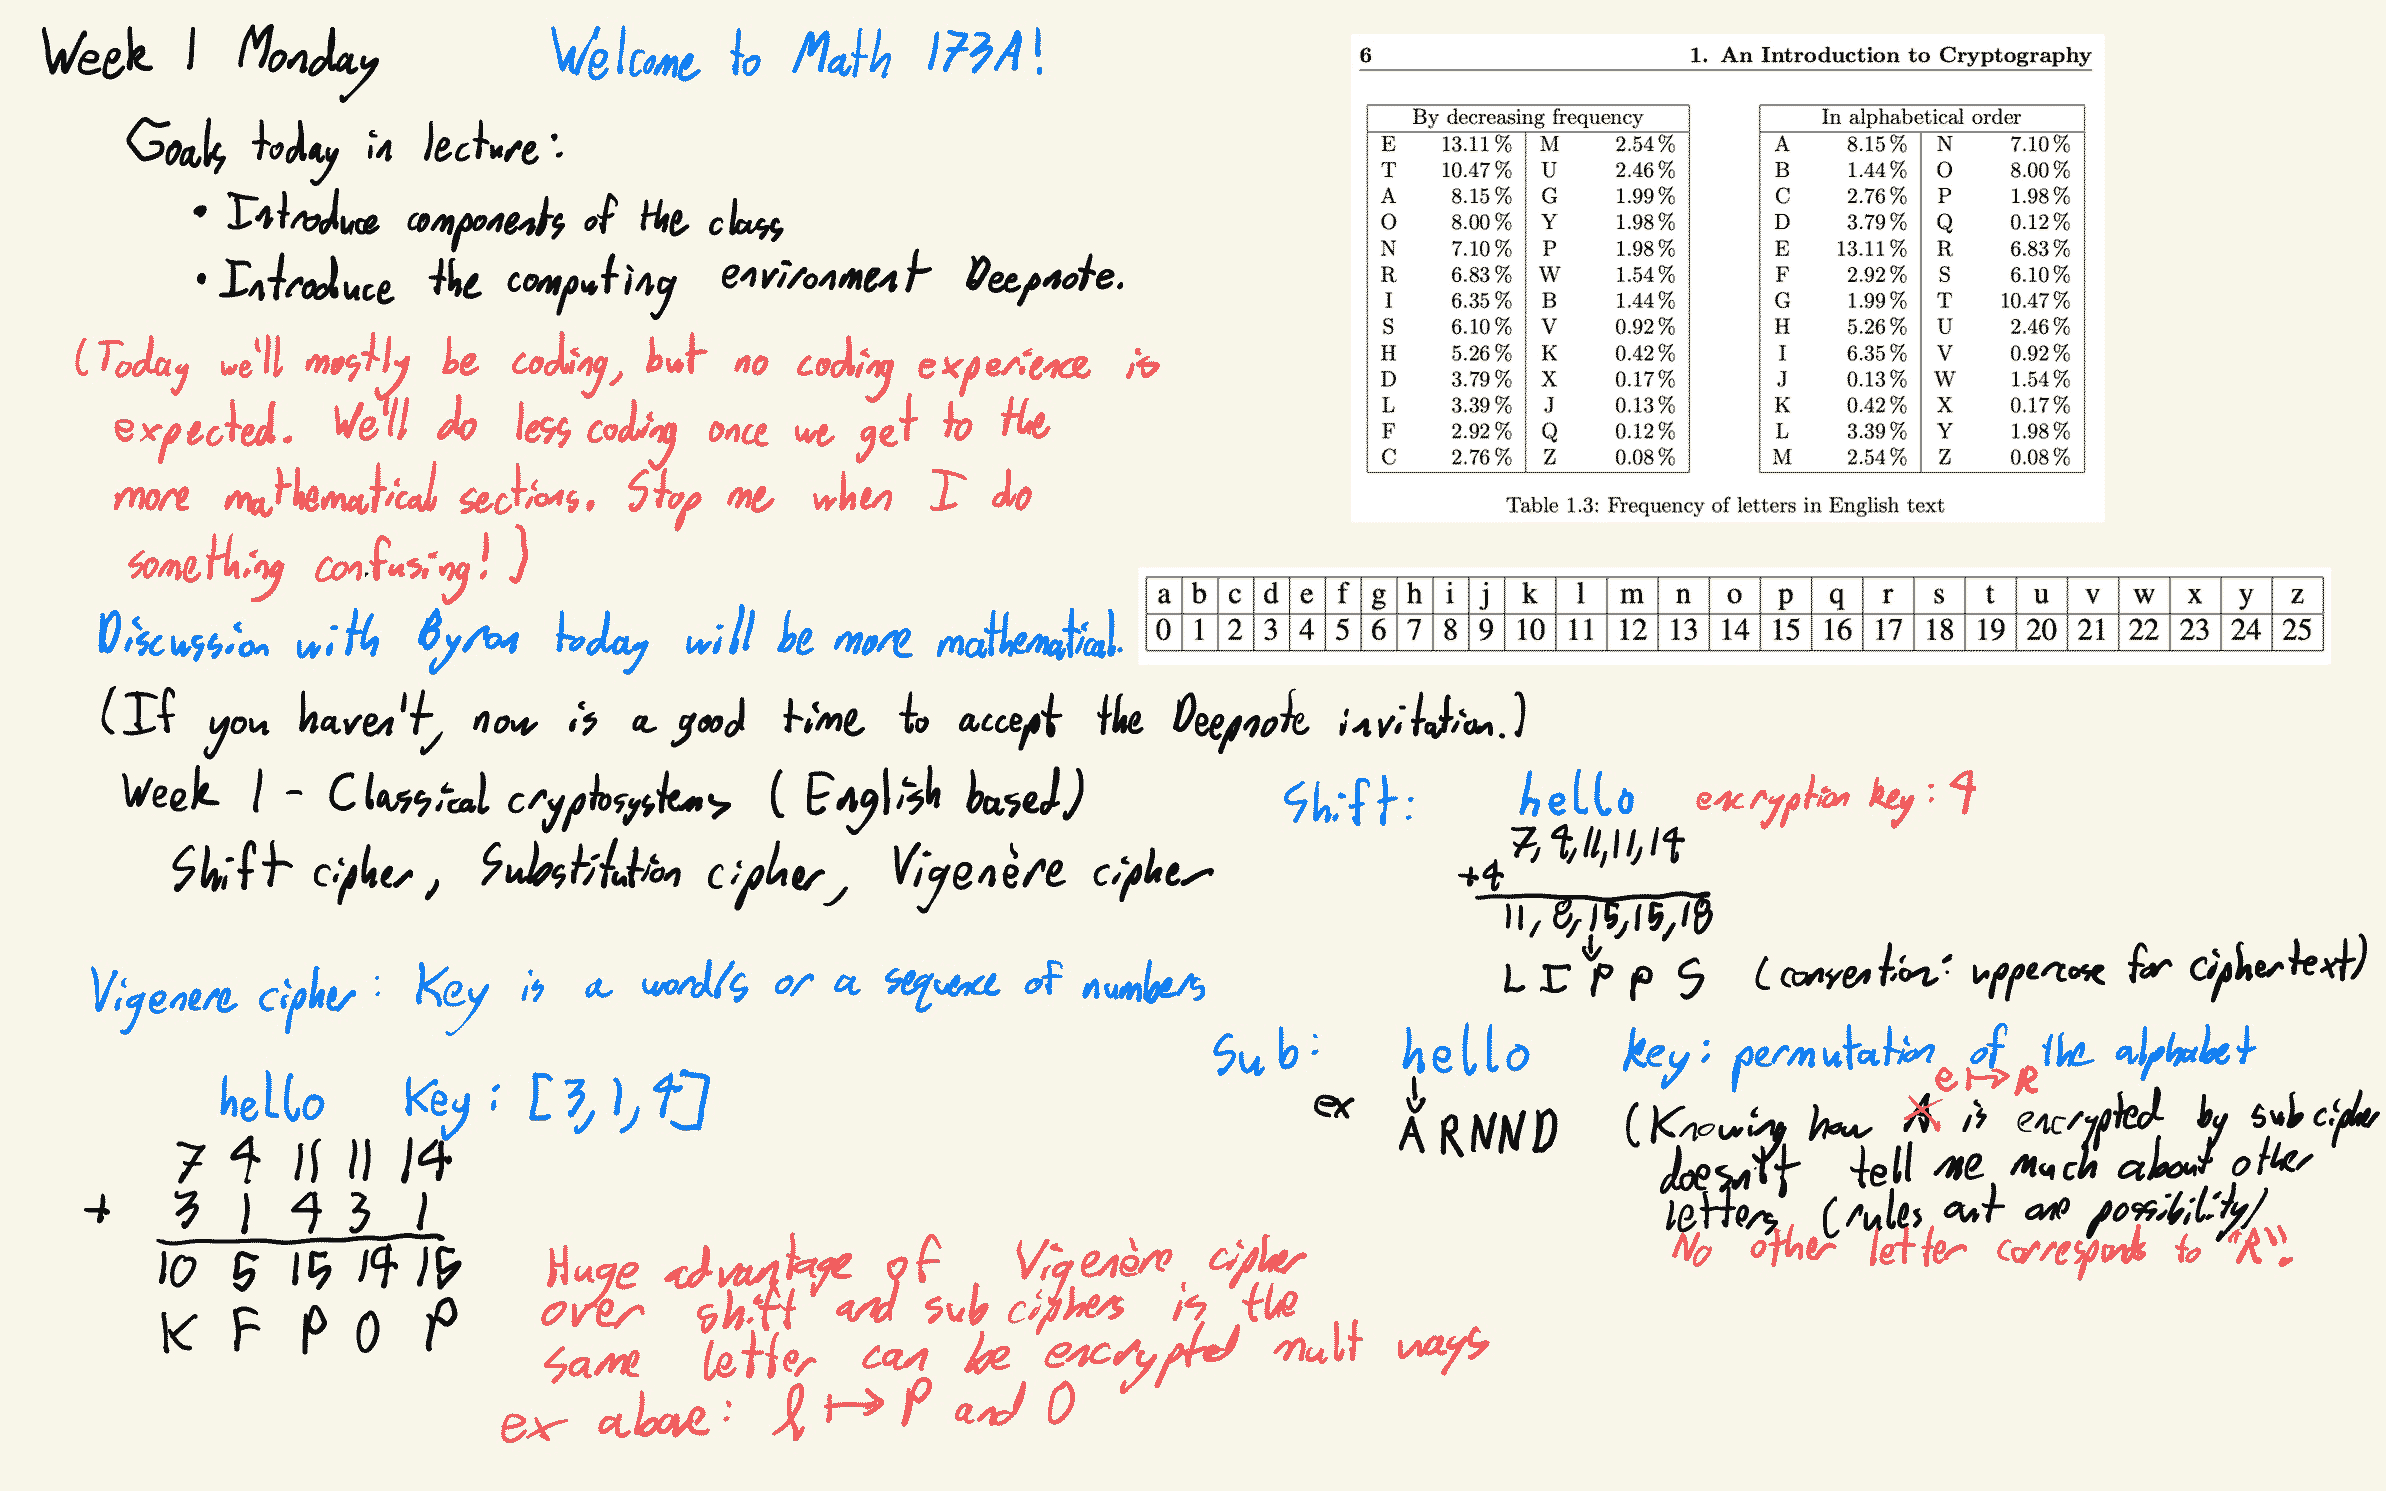 Week 1 Monday
Welcome to Math 173A!
Goals today in lecture:
• Introduce components of the class
• Introduce the computing environment Deepnote.
(Today we'll mostly be coding, but no coding experience is
expected. We'll do less coding once we get to the
more mathematical sections. Stop me when I do
something confusing!)
Discussion with Byron today will be more mathematical.
(If you haven't, now is a good time to accept the Deepnote invitation.)
Week 1 - Classical cryptosystems (English based)
Shift cipher, Substitution cipher, Vigenère cipher
Vigenere cipher: Key is a word/s or a sequence of numbers
hello Key: [3,1,4]
7 4 11 11 14
+ 3 1 4 3 1
10 5 15 14 15
K F P O P
Huge advantage of Vigenère cipher
over shift and sub ciphers is the
same letter can be encrypted mult ways
ex above: l ↦ P and O
6 1. An Introduction to Cryptography
By decreasing frequency
E 13.11% M 2.54%
T 10.47% U 2.46%
A 8.15% G 1.99%
O 8.00% Y 1.98%
N 7.10% P 1.98%
R 6.83% W 1.54%
I 6.35% B 1.44%
S 6.10% V 0.92%
H 5.26% K 0.42%
D 3.79% X 0.17%
L 3.39% J 0.13%
F 2.92% Q 0.12%
C 2.76% Z 0.08%
In alphabetical order
A 8.15% N 7.10%
B 1.44% O 8.00%
C 2.76% P 1.98%
D 3.79% Q 0.12%
E 13.11% R 6.83%
F 2.92% S 6.10%
G 1.99% T 10.47%
H 5.26% U 2.46%
I 6.35% V 0.92%
J 0.13% W 1.54%
K 0.42% X 0.17%
L 3.39% Y 1.98%
M 2.54% Z 0.08%
Table 1.3: Frequency of letters in English text
a b c d e f g h i j k l m n o p q r s t u v w x y z
0 1 2 3 4 5 6 7 8 9 10 11 12 13 14 15 16 17 18 19 20 21 22 23 24 25
Shift: hello encryption key: 4
7,4,11,11,14
+4
11,8,15,15,18
↓
L I P P S (convention: uppercase for ciphertext)
Sub: hello key: permutation of the alphabet
↓
ex A R N N D
e ↦ R
(Knowing how A is encrypted by sub cipher
doesn't tell me much about other
letters (rules out one possibility)
No other letter corresponds to "R".